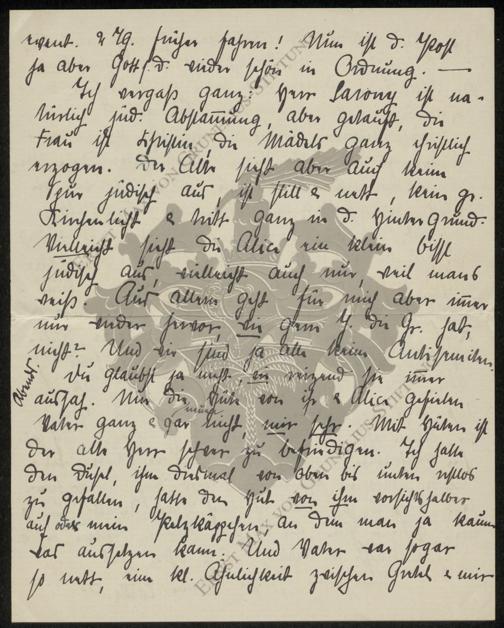 event. 2 Tg. früher fahren! Nun ist d. Post
ja aber Gott s. d. wieder schön in Ordnung. —
Ich vergaß ganz: Herr Sarony ist na-
türlich jüd. Abstammung, aber getauft, die
Frau ist Christin, die Mädels ganz christlich
erzogen. Der Alte sieht aber auch keine
Spur jüdisch aus, ist still & nett, kein gr.
Kirchenlicht & tritt ganz in d. Hintergrund.
Vielleicht sieht die Alice ein klein bissl
jüdisch aus, vielleicht auch nur, weil mans
weiß. Aus allem geht für mich aber immer
nur wieder hervor, wie gern H. die Gr. hat,
nicht? Und wir sind ja alle keine Antisemiten.
Abends.
Du glaubst ja nicht, wie reizend sie immer
aussah. Nur die Hüte von ihr & Alice gefielen
Vater ganz & gar nicht, mir sehr. Mit Hüten ist
der alte Herr schwer zu befriedigen. Ich hatte
den Dusel, ihm diesmal von oben bis unten restlos
zu gefallen, hatte den Hut von ihm vorsichtshalber
auf oder mein Pelzkäppchen an dem man ja kaum
was aussetzen kann. Und Vater war sogar
so nett, eine kl. Ähnlichkeit zwischen Gretel & mir
ERNST MAX VON GRUNELIUS-STIFTUNG
ERNST MAX VON GRUNELIUS-STIFTUNG